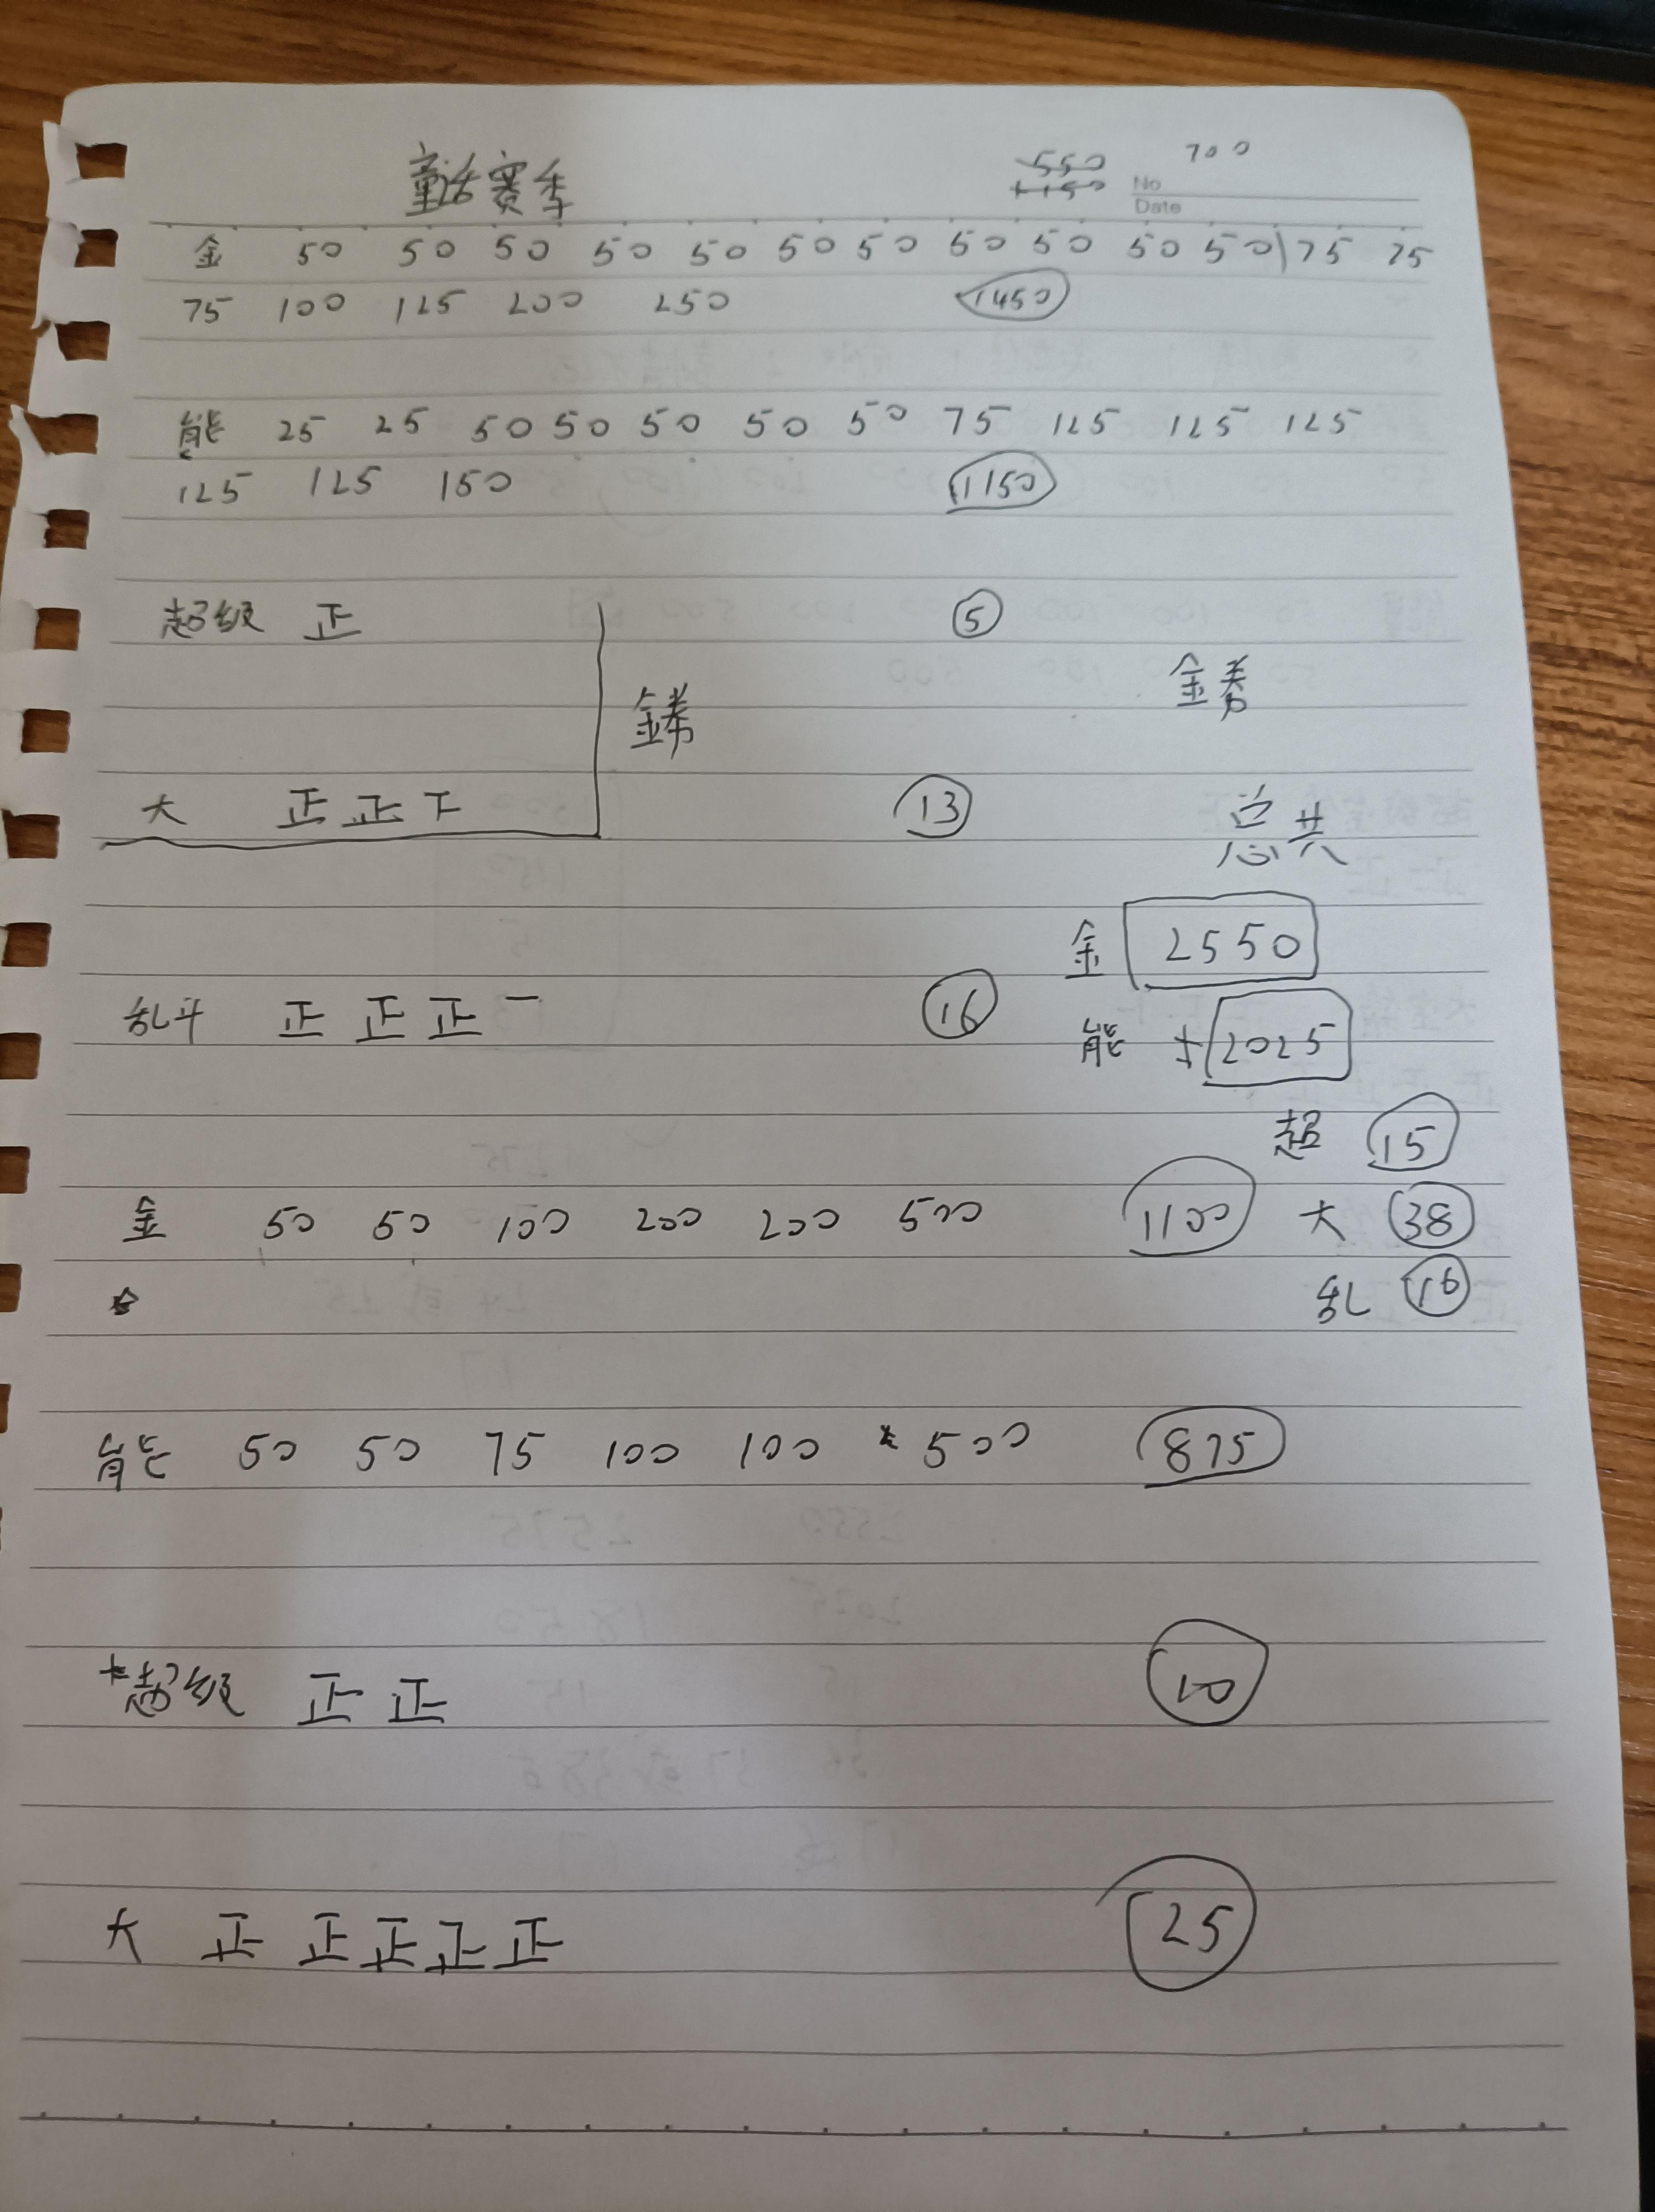 童话赛季
550 700
+150
No
Date
金 50 50 50 50 50 50 50 50 50 50 50 75 75
75 100 125 200 250 1450
能 25 25 50 50 50 50 50 75 125 125 125
125 125 150 1150
超级 正 5
金券
大 正 正 下 13
总共
金 2550
乱斗 正 正 正 一 16
能 + 2025
超 15
金 50 50 100 200 200 500 1100 大 38
乱 16
能 50 50 75 100 100 500 875
超级 正 正 10
大 正 正 正 正 正 25